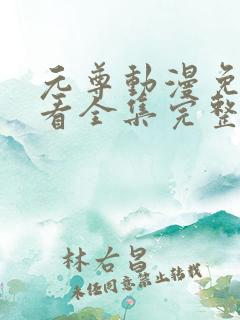 元尊動漫免
看全集完整
林右昌
未径同意禁止转载